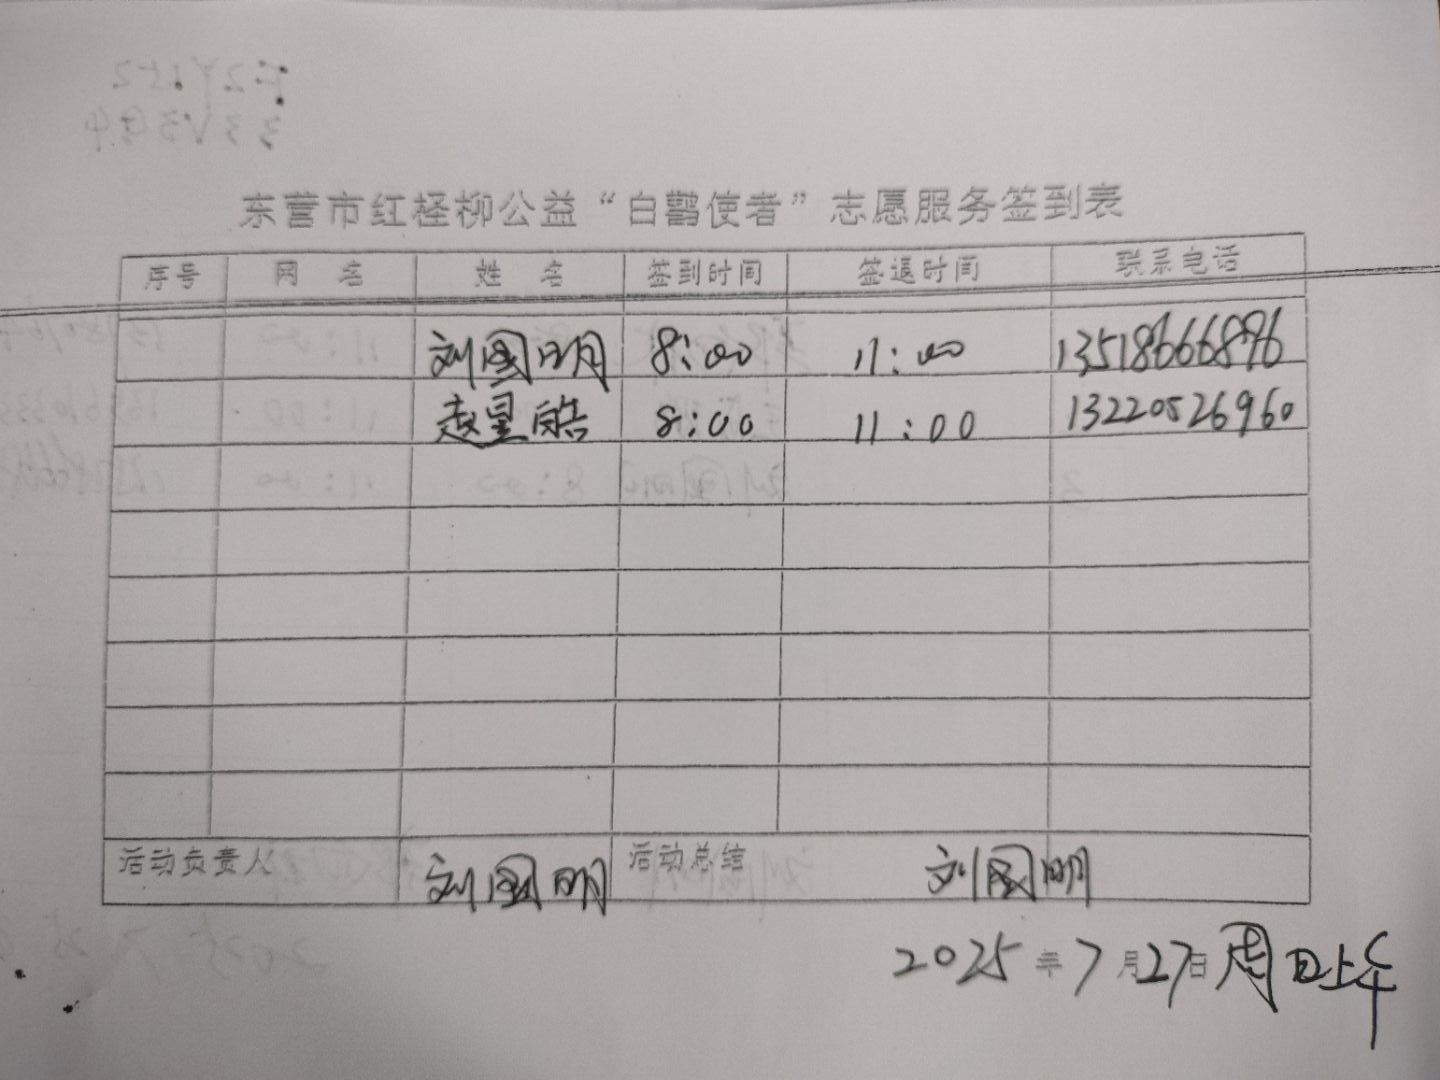 东营市红柽柳公益“白鹳使者”志愿服务签到表
序号 网 名 姓 名 签到时间 签退时间 联系电话
刘国明 8:00 11:00 13518666896
赵星皓 8:00 11:00 13220526960
活动负责人 刘国明 活动总结 刘国明
2025年7月27日周日上午